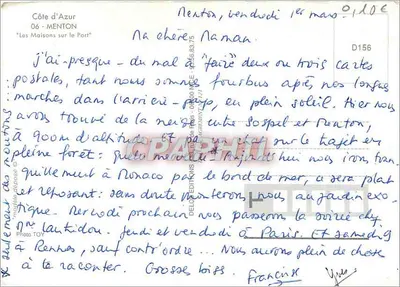 Côte d'Azur
06 - MENTON
"Les Maisons sur le Port"
0,10€
D156
Menton, vendredi 1er mars
Ma chère Maman
j'ai presque du mal à "faire" deux ou trois cartes
postales, tant nous sommes fourbus après nos longues
marches dans l'arrière-pays, en plein soleil. Hier nous
avons trouvé de la neige entre Sospel et Menton,
à 900m d'altitude. Et pas un chat sur le trajet en
pleine forêt: quelle merveille! Aujourd'hui nous irons tran-
quillement à Monaco par le bord de mer, ce sera plat
et reposant: sans doute monterons nous au jardin exo-
tique. Mercredi prochain nous passerons la soirée chez
Mme Lantidon. Jeudi et vendredi à Paris. Et samedi 9
à Rennes, sauf contr'ordre... Nous aurons plein de choses
à te raconter. Grosses bises.
Francis
Yves
* seulement des moutons...
Photo TOY
CPAPHIL